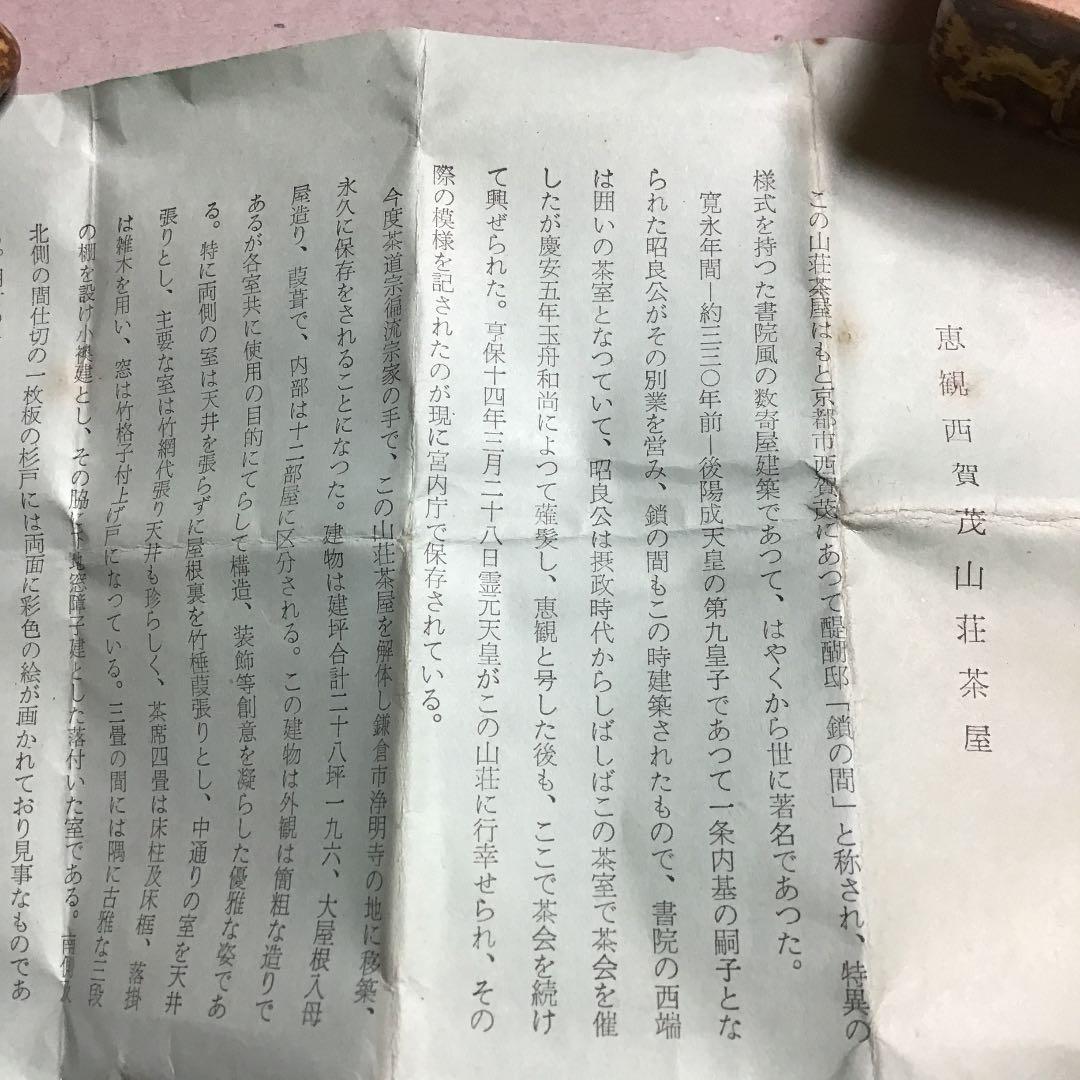 恵観西賀茂山荘茶屋
この山荘茶屋はもと京都市西賀茂にあつて醍醐邸「鎖の間」と称され、特異の
様式を持つた書院風の数寄屋建築であつて、はやくから世に著名であつた。
寛永年間―約三三〇年前―後陽成天皇の第九皇子であつて一条内基の嗣子とな
られた昭良公がその別業を営み、鎖の間もこの時建築されたもので、書院の西端
は囲いの茶室となつていて、昭良公は摂政時代からしばしばこの茶室で茶会を催
したが慶安五年玉舟和尚によつて薙髪し、恵観と号した後も、ここで茶会を続け
て興ぜられた。享保十四年三月二十八日霊元天皇がこの山荘に行幸せられ、その
際の模様を記されたのが現に宮内庁で保存されている。
今度茶道宗偏流宗家の手で、この山荘茶屋を解体し鎌倉市浄明寺の地に移築、
永久に保存をされることになつた。建物は建坪合計二十八坪一九六、大屋根入母
屋造り、葭葺で、内部は十二部屋に区分される。この建物は外観は簡粗な造りで
あるが各室共に使用の目的にてらして構造、装飾等創意を凝らした優雅な姿であ
る。特に両側の室は天井を張らずに屋根裏を竹棰葭張りとし、中通りの室を天井
張りとし、主要な室は竹網代張り天井も珍らしく、茶席四畳は床柱及床框、落掛
は雑木を用い、窓は竹格子付上げ戸になつている。三畳の間には隅に古雅な三段
の棚を設け小襖建とし、その脇は下地窓障子建とした落付いた室である。南側
北側の間仕切の一枚板の杉戸には両面に彩色の絵が画かれており見事なものであ